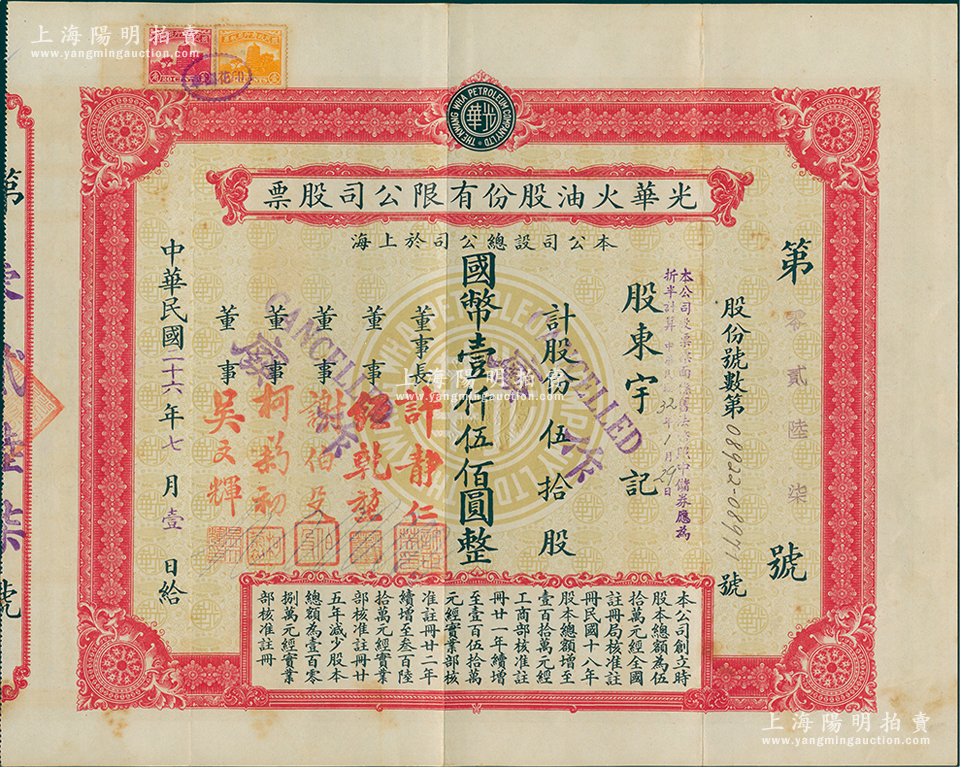 上海陽明拍賣
www.yangmingauction.com
THE KWANG WHA PETROLEUM COMPANY LTD
光華
光華火油股份有限公司股票
本公司設總公司於上海
第零貳陸柒號
股份號數第 08922-08971 號
本公司股票票面
折半計算
32年1月29日
股東宇記
計股份伍拾股
國幣壹仟伍佰圓整
CANCELLED
CANCELLED
董事長 許靜仁
董事
董事 謝伯殳
董事 柯菊初
董事 吳文輝
中華民國二十六年七月壹日給
本公司創立時
股本總額為伍
拾萬元經全國
註冊局核准註
冊民國十八年
股本總額增至
壹百拾萬元經
工商部核准註
冊廿一年續增
至壹百伍拾萬
元經實業部核
准註冊廿二年
續增至叁百陸
拾萬元經實業
部核准註冊廿
五年減少股本
總額為壹百零
捌萬元經實業
部核准註冊
第
貳陸柒號
上海陽明拍賣
www.yangmingauction.com
上海陽明拍賣
www.yangmingauction.com